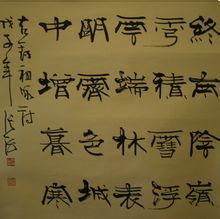 終南陰嶺
秀積雪浮
雲端林表
明霽色城
中增暮寒
右錄祖詠詩
戊子年